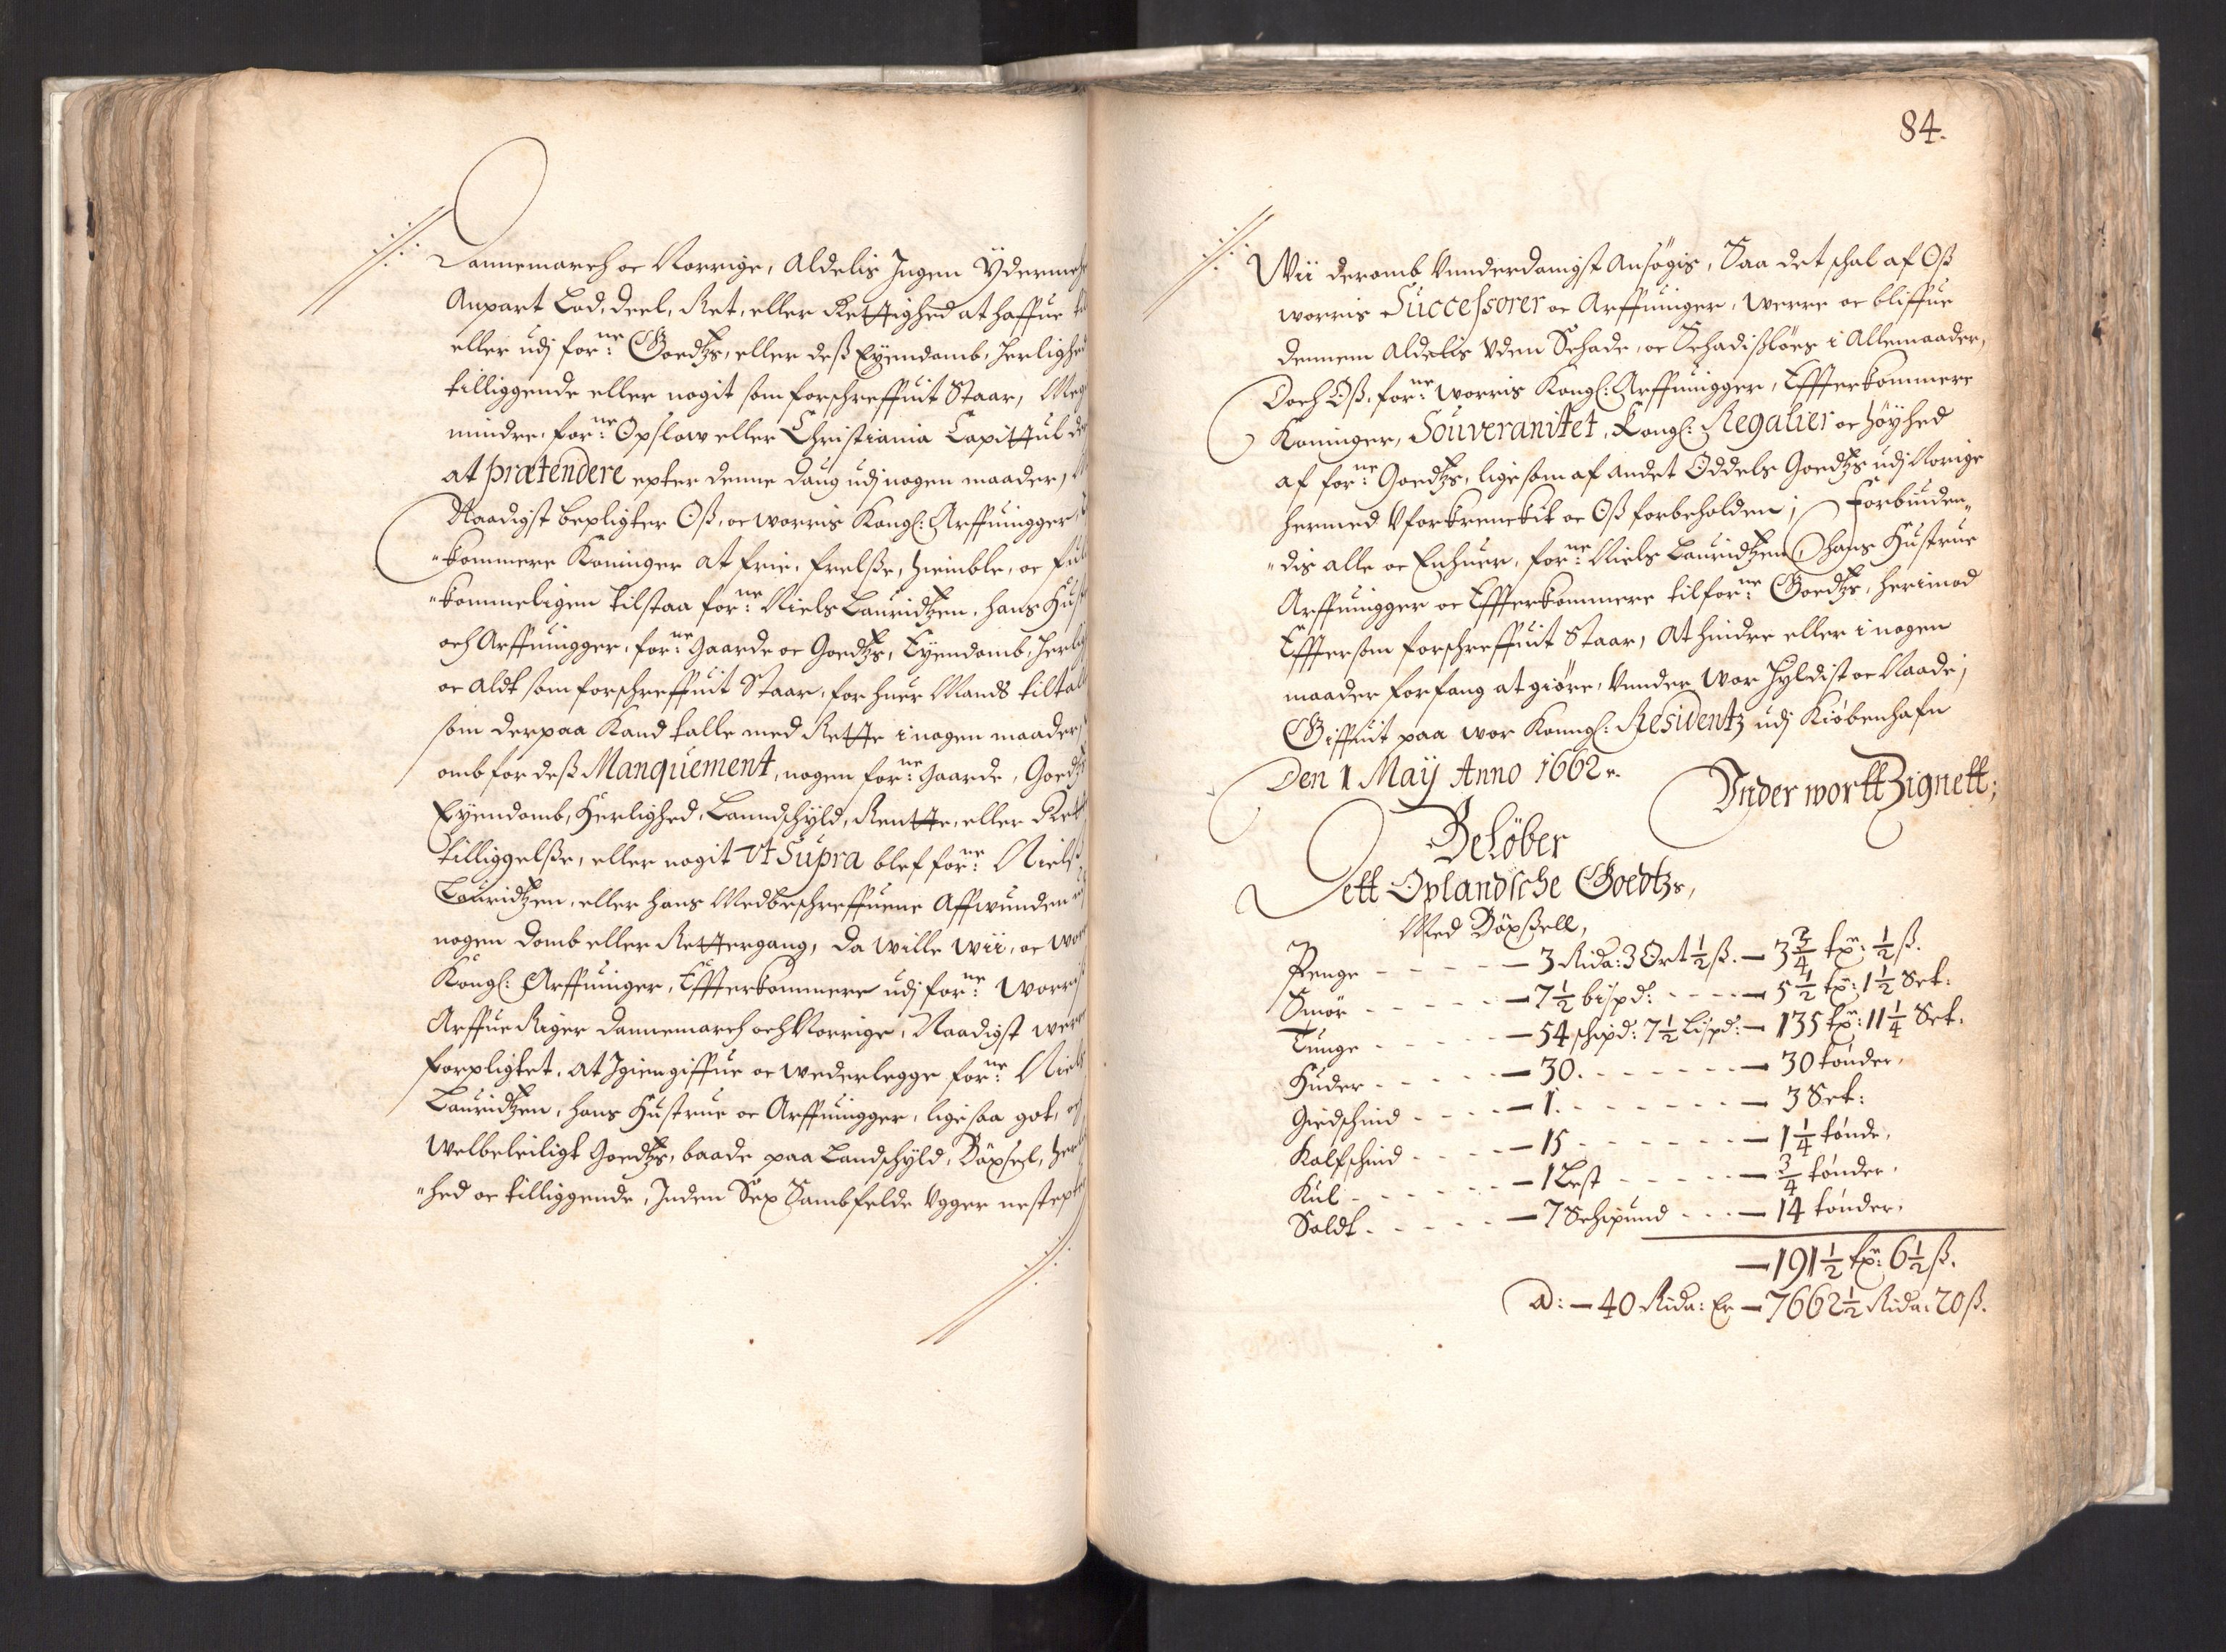 Dannemarch oc Norrige, Aldelis Ingen Ydermehr
Anpart Lod, deel, Ret, eller Rettighed at haffue til
eller udj forne: Goedtzs, eller deß Eyendomb, Herlighed
tilliggende eller nogit som forschreffuit Staar, Meget
mindre forne: Opslow eller Christiania Capittul der
at prætendere epter denne daug udj nogen maader,
Naadigst bepligter Oß, oc worris Kongl: Arffuingger,
"kommere Koninger at frie, frelsße, hiemble, oc ful
"kommeligen tilstaa forne: Niels Lauridtzen, hans Hust
och Arffuingger, forne: Gaarde oc Goedtzs, Eyendomb, Herlig
oc aldt som forschreffuit Staar, for huer Mands tiltale
som derpaa Kand talle med Rette i nogen maader,
omb for deß Manquement, nogen forne: Gaarde, Goedtzs
Eyendomb, Herlighed, Landschyld, Rentte, eller Rett
tilliggelsße, eller nogit Vt Supra blef forne: Nielß
Lauridtzen, eller hans Medbeschreffuene Affwunden
nogen domb eller Rettergang, da wille wii, oc wor
Kongl: Arffuinger, Effterkommere udj forne: Worris
Arffue Riger Dannemarch och Norrige, Naadigst were
forpligtet, at Igiengiffue oc wederlegge forne: Niels
Lauridtzen, hans Hustrue oc Arffuingger, lige saa got, och
Welbeleiligt Goedtzs, baade paa Landschyld, Böxsel, Herlig
"hed oc tilliggende, Inden Sex Sambfelde Ugger nestepter
84.
Wii deromb Vnnderdanigst Ansögis, Saa det schal af Oß
worris Successorer oc Arffuinger, werre oc bliffue
dennem Aldelis Uden Schade, oc Schadisßlöes i Allemaader,
Doch Oß, forne: worris Kongl: Arffuingger, Effterkommere
Koninger, Souveranitet, Kongl: Regalier oc Höyhed
af forne: Goedtzs, lige som af andet Oddels Goedtzs udj Norige
hermed Vforkrenckit oc Oß forbeholden; Forbiuden„
"dis alle oc Enhuer, forne: Niels Lauridtzen, hans Hustrue
Arffuingger oc Effterkommere til forne: Goedtzs, herimod
Effter som forschreffuit Staar, At hindre eller i nogen
maader forfang at giöre, Vnnder Wor Hyldist oc Naade;
Giffuit paa wor Kongl: Residentz udj Kiöbenhafn
Den 1 Maÿ Anno 1662.
Under wortt Zignett;
Belöber
Dett Oplandsche Goedtzs,
Med Böxßell,
Penge - - - - - 3 Rida: 3 Ort ½ ß. - 3¾ tpr: ½ ß.
Smör - - - - 7½ bispd: - - - - 5½ tpr: 1½ Set:
Tunge - - - - - 54 schipd: 7½ Lispd: - 135 tpr: 11¼ Set:
Huder - - - - - 30. - - - - - - - 30 tönder.
Giedschind - - - - 1. - - - - - - - 3 Set:
Kalfschind - - - - 15 - - - - - - - 1¼ tönde.
Kul - - - - - - 1 Lest - - - - - ¾ tönder.
Saldt - - - - - 7 Schipund - - - 14 tönder.
191½ tpr: 6½ ß.
a: - 40 Rida: Er - 7662½ Rida: 20 ß.